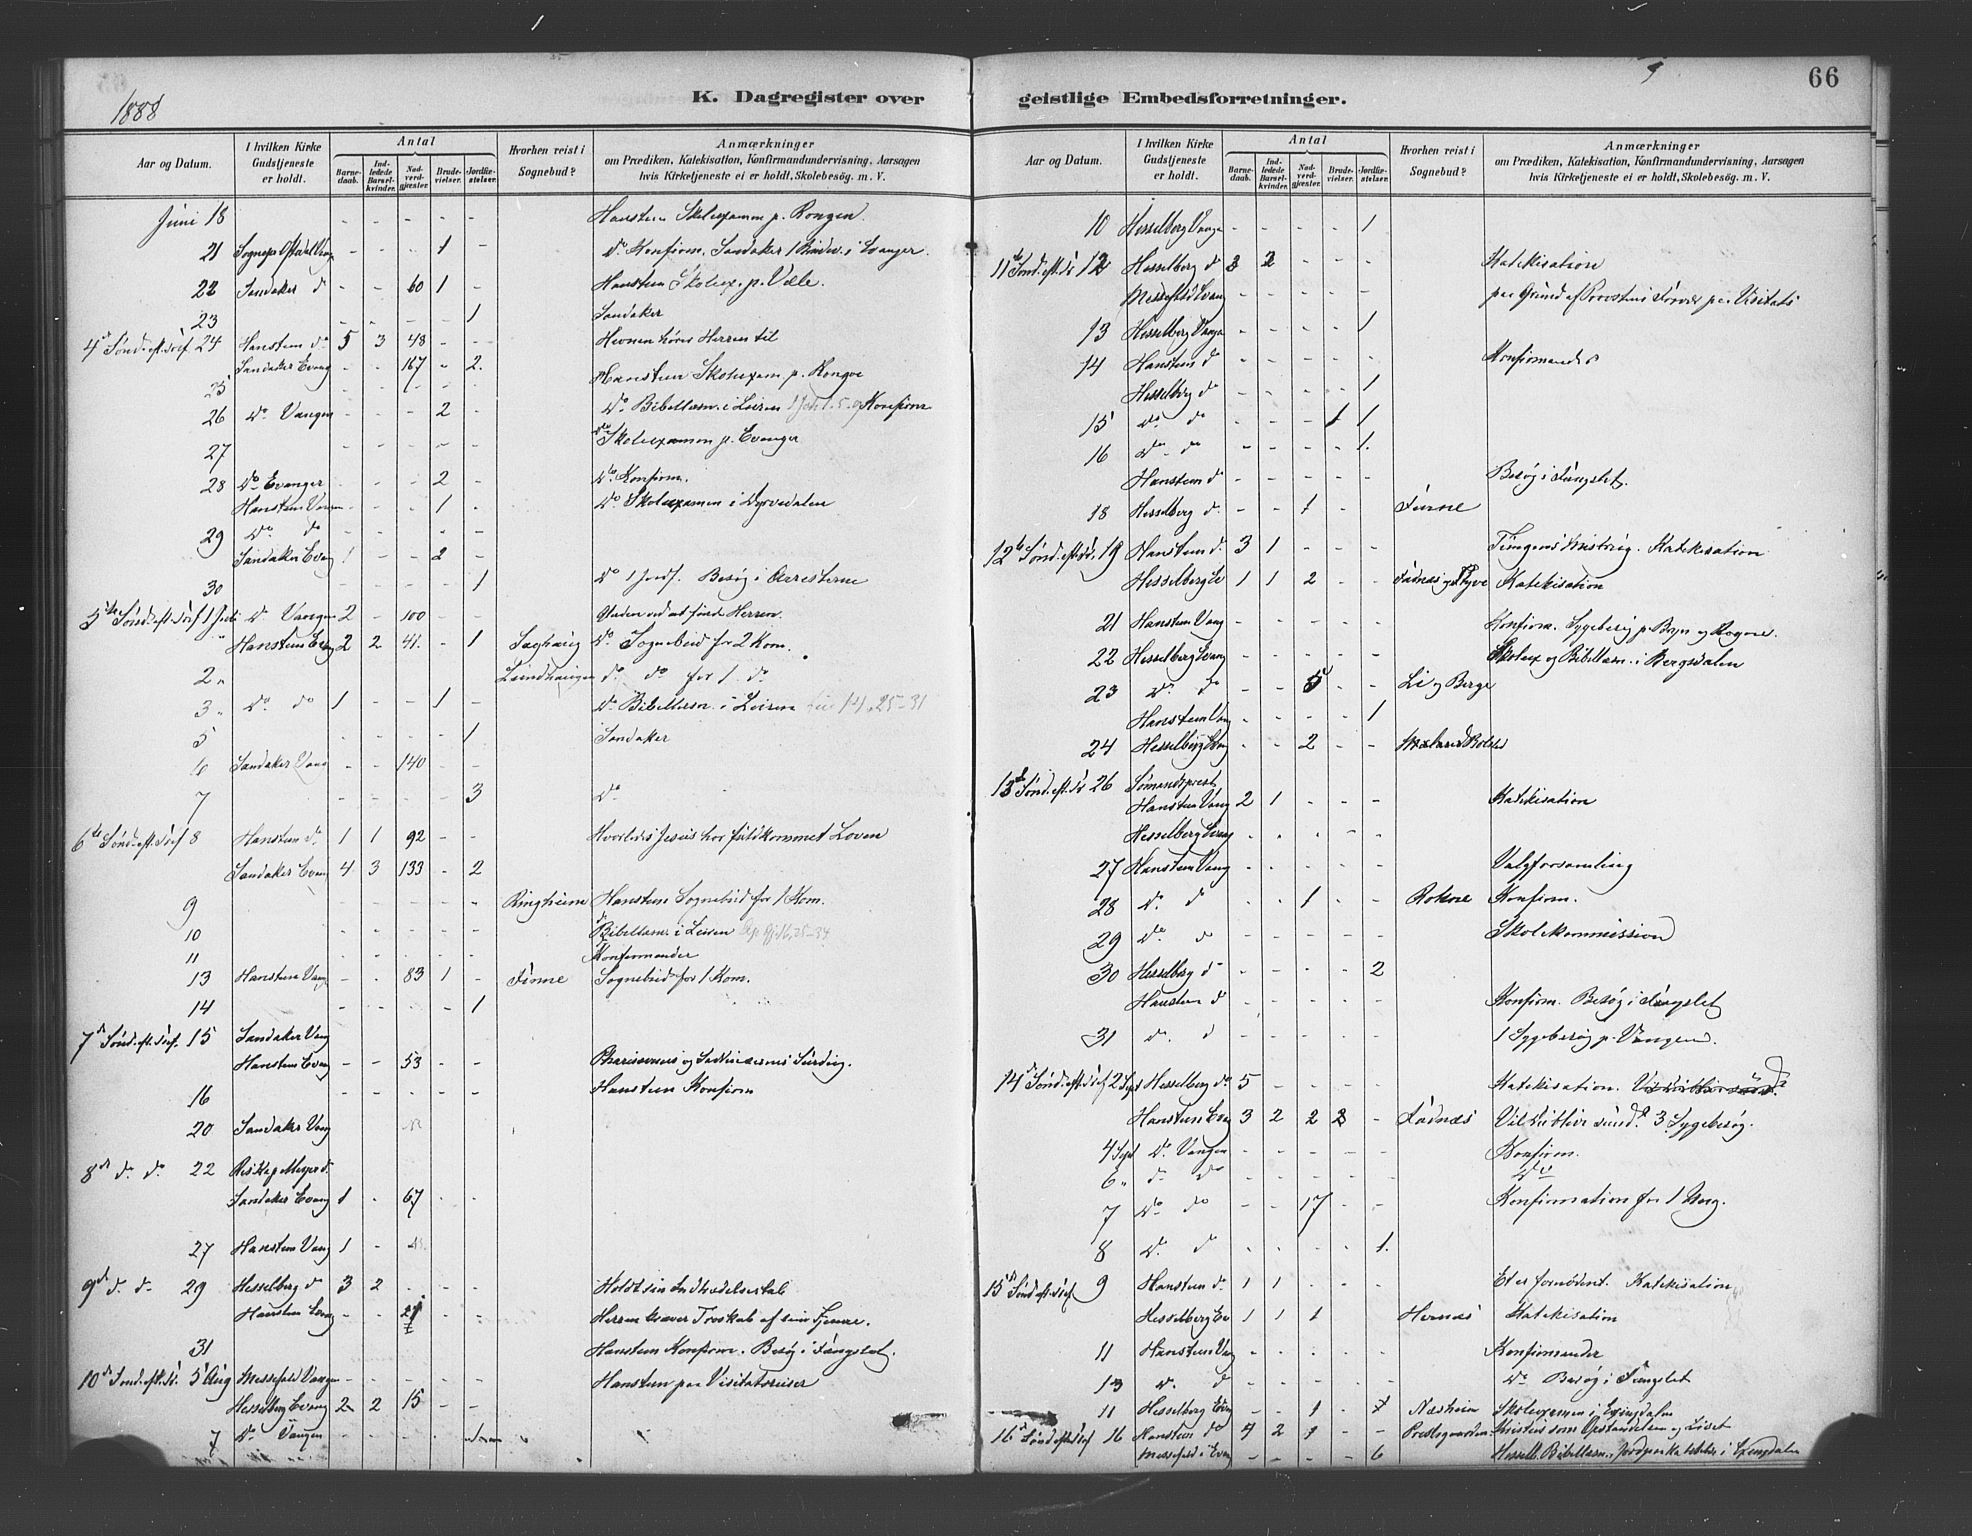 1888
K. Dagregister over
Aar og Datum.
I hvilken Kirke Gudstjeneste er holdt.
Antal
Barnedaab.
Indledede Barselkvinder.
Nadverdgjester.
Brudevielser.
Jordfæstelser.
Hvorhen reist i Sognebud?
Anmærkninger
om Prædiken, Katekisation, Konfirmandundervisning, Aarsagen
hvis Kirketjeneste ei er holdt, Skolebesøg. m. V.
Juni 18 - - - - - Hansteen Skolexamen p. Rongen
21 - - - 1 - do Konfirm. Sandaker 1 Brudev. i Evanger.
22 Sandaker do - - 60 1 - Hansteen Skolex. p. Vælle.
23 - - - - 1 Sandaker
4d Sønd. eft. Tref. 24 Hansteen do 5 3 48 - - Hevnen hører Herren til
Sandaker Evang - - 167 - 2.
25 - - - - - Hansteen Skolexam p. Rongve
26 do Vangen - - - 2 - do Bibellæsn. i Leiren 1 Joh. 1. 5. og Konfirm
27 - - - - - do Skolexamen p. Evanger
28 do Evanger - - - 2 - do Konfirm.
Hansteen Vangen - - - 1 - do Skolexamen i Dyrvedalen
29 do do - - - - -
Sandaker Evang 1 - - 2 -
30 - - - - 1 do 1 Jordf. Besøg i Arresterne
5te Sønd. eft. Tref 1 Juli do Vangen 2 - 100 - -
Hansteen Evang 2 2 41. - 1 Saghaug do Sognebud for 2 Kom.
2 Lundhaugen do do for 1 do
3 do do 1 - - 1 - do Bibellæsn. i Leiren 14, 25-31
5 - - - - 1 Sandaker
6 Sandaker Vang - - 140 - -
7 - - - - 3 do
6te Sønd. eft. Tref 8 Hansteen do 1 1 92 - - Hvorledes Jesus har fuldkommet Loven
Sandaker Evan 4 3 133 - 2
9 - - - - - Ringheim Hansteen Sognebud for 1 Kom.
10 - - - - - do Bibellæsn. i Leiren Ap. Gj. 16, 25-34
11 - - - - - Konfirmander
13 Hansteen Vang - - 83 1 - Finne Sognebud for 1 Kom.
14 - - - - 1
7d Sønd. eft. Tref. 15 Sandaker Vang
Hansteen Evang - - 53 - - Pharisæernes og Sadducæernes Surdeig.
16 - - - - - Hansteen Konfirm
20 Sandaker Vang
8d do do 22 Biskop Meyer do
Sandaker Evang 1 - 67 - -
27 Hansteen Vang 1 -
9d do do 29 Hesselberg do 3 2 - - -
Hansteen Evang - - - - Herren kræver Troskab af sine Tjenere.
31 Hansteen Konfirm. Besøg i Fængslet.
10d Sønd. eft. Tr. 5 Aug Messefald Vangen - - - - - Hansteen paa Visitatsreiser
Hesselberg Evang 2 2 15 - -
7 do Vangen - - - -
66
geistlige Embedsforretninger.
Aar og Datum.
I hvilken Kirke Gudstjeneste er holdt.
Antal
Barnedaab.
Indledede Barselkvinder.
Nadverdgjester.
Brudevielser.
Jordfæstelser.
Hvorhen reist i Sognebud?
Anmærkninger
om Prædiken, Katekisation, Konfirmandundervisning, Aarsagen
hvis Kirketjeneste ei er holdt, Skolebesøg. m. V.
10 Hesselberg Vange - - - - 1
11te Sønd. eft. Tr 12 Hesselberg do 3 2 - - - Katekisation
Messefald Evang - - - - - paa Grund af Provstens Fravær paa Visitats
13 Hesselberg Vange - - - - 1
14 Hansteen do - - - - - Konfirmander
Hesselberg do - - - - 1
15 do do - - - 1 1
16 do do - - - - 1.
Hansteen do Besøg i Fængslet.
18 Hesselberg do - - 1 - - Finne
12te Sønd. eft. Tr. 19 Hansteen do 3 1 - - - Tungens Misbrug. Katekisation
Hesselberg Ev 1 1 2 - - Katekisation
21 Hansteen Vang - - - - - Konfirm. Sygebesøg p. Bryn og Rogne.
22 Hesselberg Evang - - - - - Skolex og Bibellæsn. i Bergsdalen
23 do do - - 5 - - Li og Berge
Hansteen Vang - - - - 1
24 Hesselberg Evang - - 2 - -
13d Sønd. eft. Tr 26 Sømandsprest
Hansteen Vang 2 1 - - - Katekisation
Hesselberg Evang - - - - -
27 Hansteen Vang Valgforsamling
28 do do - - 1 - - Rokne Konfirm.
29 do do - - - - - Skolekommission
30 Hesselberg do - - - - 2
Hansteen do - - - - - Konfirm. Besøg i Fængslet
31 do do - - - - - 1 Sygebesøg p. Vangen.
14d Sønd. eft. Tref 2 Sept Hesselberg do 5 - - - - Katekisation.
Hansteen Evang 3 2 2 2 - Fadnæs Vil du blive sund? 3 Sygebesøg.
4 Sept do Vangen - - - - - Konfirm.
6 do do - - - - - do
7 do do - - 17 - - Konfirmation for 1 Ung.
8 do do - - - - 1.
15d Sønd. eft. Tref 9 Hansteen do 1 1 - - - Et er fornødent. Katekisation
Hesselberg Ev 1 1 1 - - Hernæs Katekisation
11 Hansteen Vang - - - - - Konfirmander
13 do do - - - - - do Besøg i Fængslet
11 Hesselberg Evang - - 1 - Næsheim Skolexamen i Exingdalen
16d Sønd. eft. Tref 16 Hansteen do 4 2 1 - - Prestegaarden Kristus som Opstandelsen og Livet
Messefald i Evang - - - - 6 Hesselb. Bibellæsn. i Exingdalen